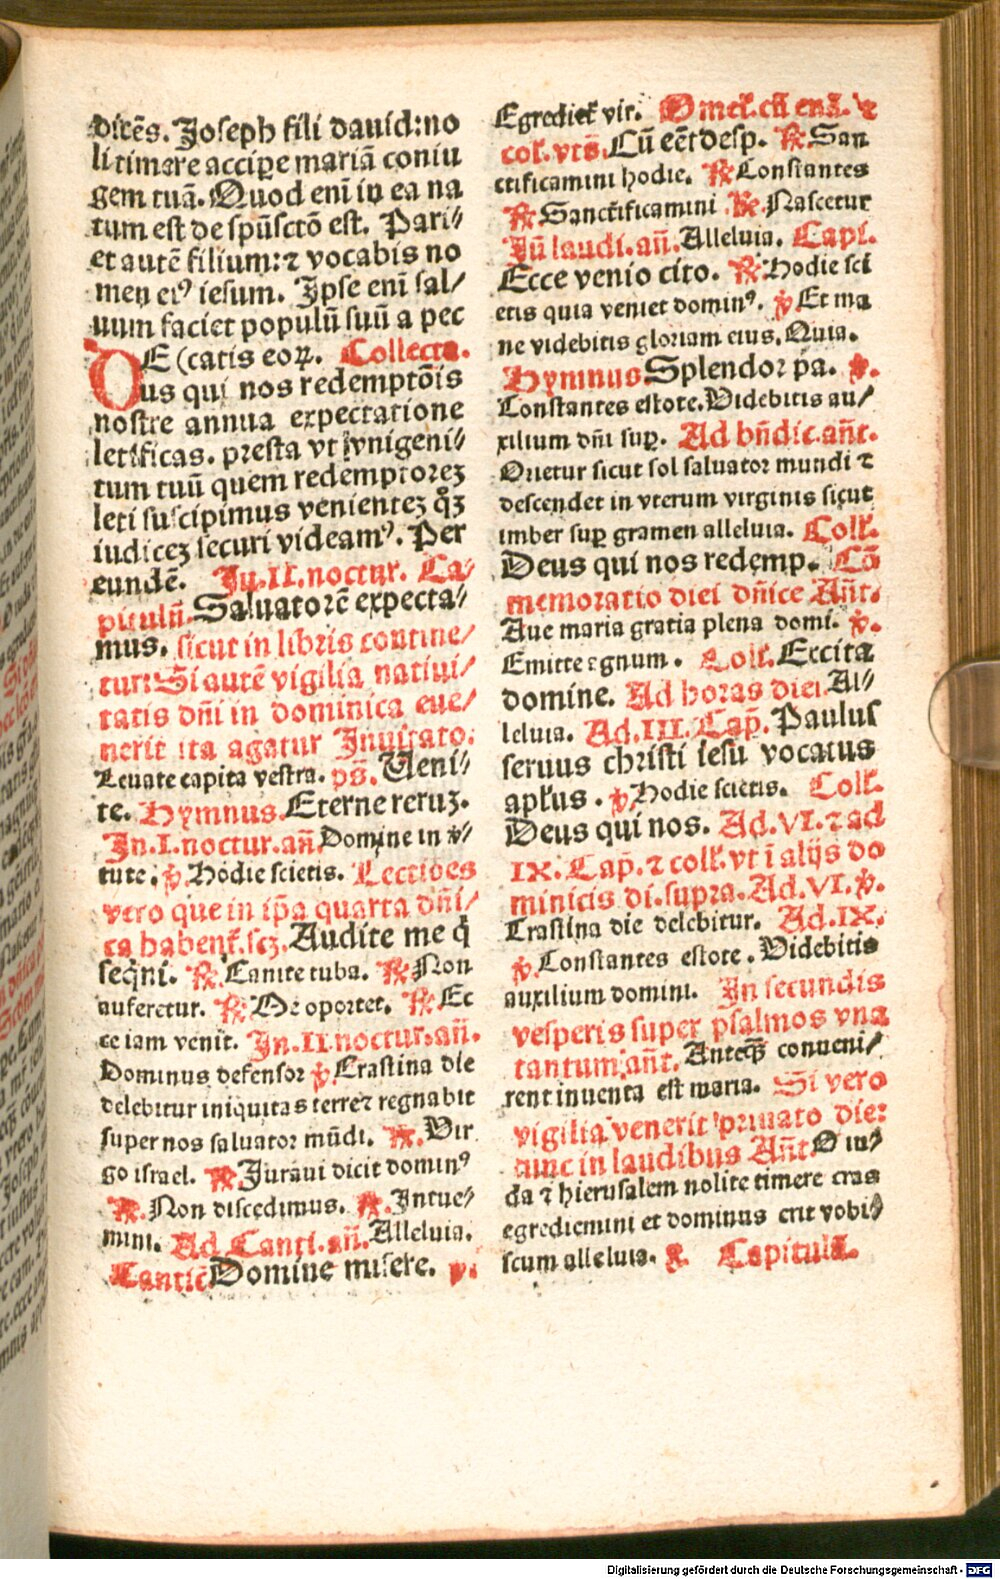 dicēs. Joseph fili dauid: no
li timere accipere mariā coniu
gem tuā. Quod eni in ea na
tum est de spūsctō est. Pari⸗
et autē filium: ⁊ vocabis no
men eiꝰ iesum. Ipse eni sal⸗
uum faciet populū suū a pec
DE (catis eoꝝ. Collecta.
us qui nos redemptōis
nostre annua expectatione
letificas. presta vt vnigeni⸗
tum tuū quem redemptoreꝫ
leti suscipimus venienteꝫ qꝫ
iudiceꝫ securi videamꝰ. Per
eundē. In. II. noctur. Ca⸗
pitulū. Saluatorē expecta⸗
mus. sicut in libris contine⸗
tur: Si autē vigilia natiui⸗
tatis dñi in dominica eue⸗
nerit ita agatur Inuitato.
Leuate capita vestra. pš. Veni⸗
te. Hymnus. Eterne reruꝫ.
In. I. noctur. añ. Domine in v̄⸗
tute: ℣. Hodie scietis. Lectiones
vero que in ip̄a quarta dñi⸗
ca habent̄. scꝫ. Audite me q̄
seqñi. ℟. Canite tuba. ℟. Non
auferetur. ℟. Me oportet. ℟. Ec
ce iam venit. In. II. noctur. añ.
Dominus defensor ℣. Crastina die
delebitur iniquitas terre ⁊ regnabit
super nos saluator mūdi. ℟. Vir
go israel. ℟. Juraui dicit dominꝰ
℟. Non discedimus. ℟. Intue⸗
mini. Ad Canti. añ. Alleluia.
Canticū Domine misere. ℣.
Egrediet̄ vir. Omel. cū euā. ⁊
col. vts̄. Cū eēt desp. ℟. San
ctificamini hodie. ℟. Constantes
℟. Sanctificamini ℟. Nascetur
Iñ laudi. añ. Alleluia. Capi.
Ecce venio cito. ℟. Hodie sci
etis quia veniet dominꝰ. ℣. Et ma
ne videbitis gloriam eius. Quia.
Hymnus. Splendor pa. ℣.
Constantes estote. Videbitis au⸗
xilium dñi suꝑ. Ad bñdic. añt.
Orietur sicut sol saluator mundi ⁊
descendet in vterum virginis sicut
imber suꝑ gramen alleluia. Coll.
Deus qui nos redemp. Cō
memoratio diei dñice Añt.
Aue maria gratia plena domi. ℣.
Emitte agnum. Coll. Excita
domine. Ad horas diei. Al⸗
leluia. Ad. III. Cap̄. Paulus
seruus christi iesu vocatus
apl̄us. ℣. Hodie scietis. Coll.
Deus qui nos. Ad. VI. ⁊ ad
IX. Cap̄. ⁊ coll. vt ī alijs do
minicis di. supra. Ad. VI. ℣.
Crastina die delebitur. Ad. IX.
℣. Constantes estote. Videbitis
auxilium domini. In secundis
vesperis super psalmos vna
tantum añt. Anteqꝫ conueni⸗
rent inuenta est maria. Si vero
vigilia venerit priuato die:
tunc in laudibus Añt O iu⸗
da ⁊ hierusalem nolite timere cras
egrediemini et dominus erit vobi⸗
scum alleluia. ℟. Capitula.
Digitalisierung gefördert durch die Deutsche Forschungsgemeinschaft - DFG